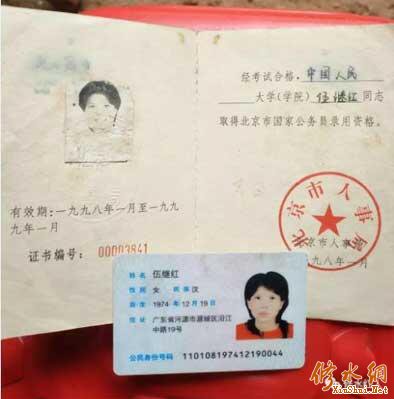 有效期:一九九八年一月至一九九
九年一月
证书编号: 00003841
经考试合格, 中国人民
大学(学院) 伍继红 同志
取得北京市国家公务员录用资格。
北京市人事局
北京市人事局
九八年一月
姓名 伍继红
性别 女 民族 汉
出生 1974 年 12 月 19 日
住址 广东省河源市源城区沿江
中路19号
公民身份号码 110108197412190044
修水網
XiuShui.Net